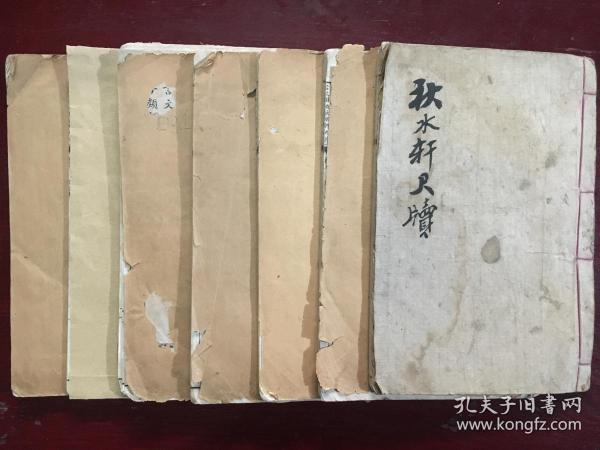 秋水轩尺牘
古文
類
孔夫子旧书网
www.kongfz.com